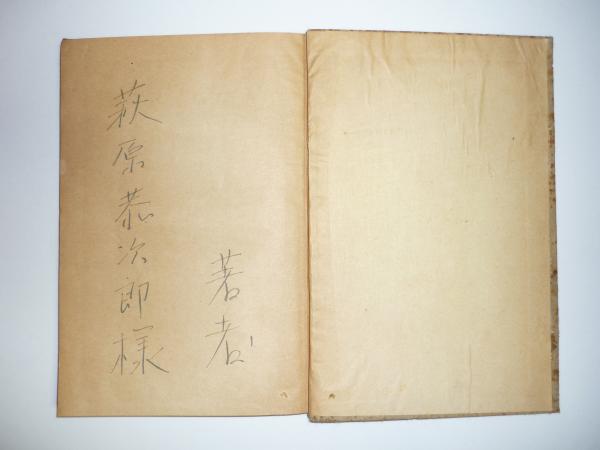 萩原恭次郎様
著者